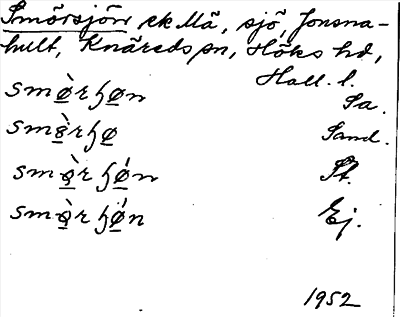 Smörsjön ek Mä, sjö, Jonsna-
hult, Knäreds sn, Höks hd,
Hall. l.
smø̲̀rɧø̲n Sa.
smø̲̀rɧø̲ Sand.
smø̲̀rɧǿ̲n St.
smø̲̀rɧǿ̲n Ej.
1952